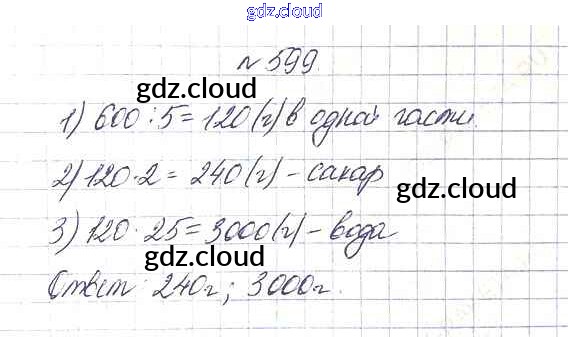 gdz.cloud
№ 599.
gdz.cloud
1) 600 : 5 = 120 (г) в одной части.
gdz.cloud
2) 120 · 2 = 240 (г) - сахар
gdz.cloud
3) 120 · 25 = 3000 (г) - вода
gdz.cloud
Ответ: 240г; 3000г.